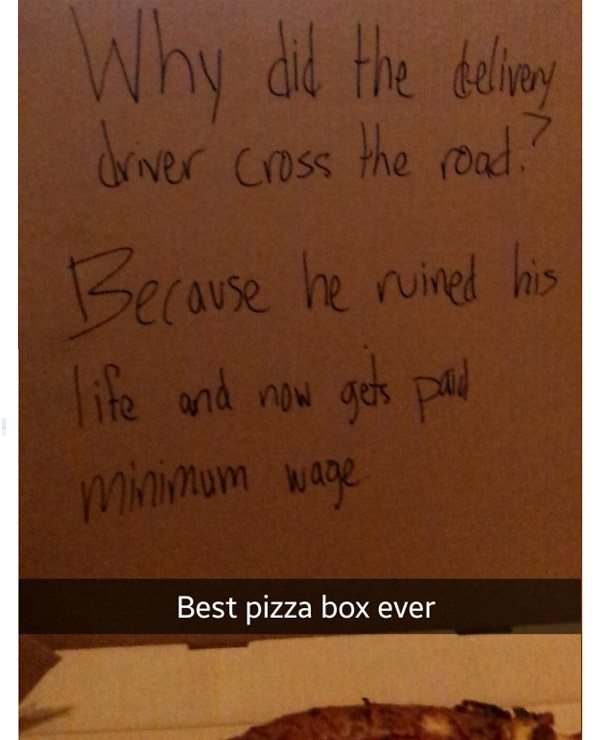 Why did the delivery
driver cross the road?
Because he ruined his
life and now gets paid
minimum wage.
Best pizza box ever